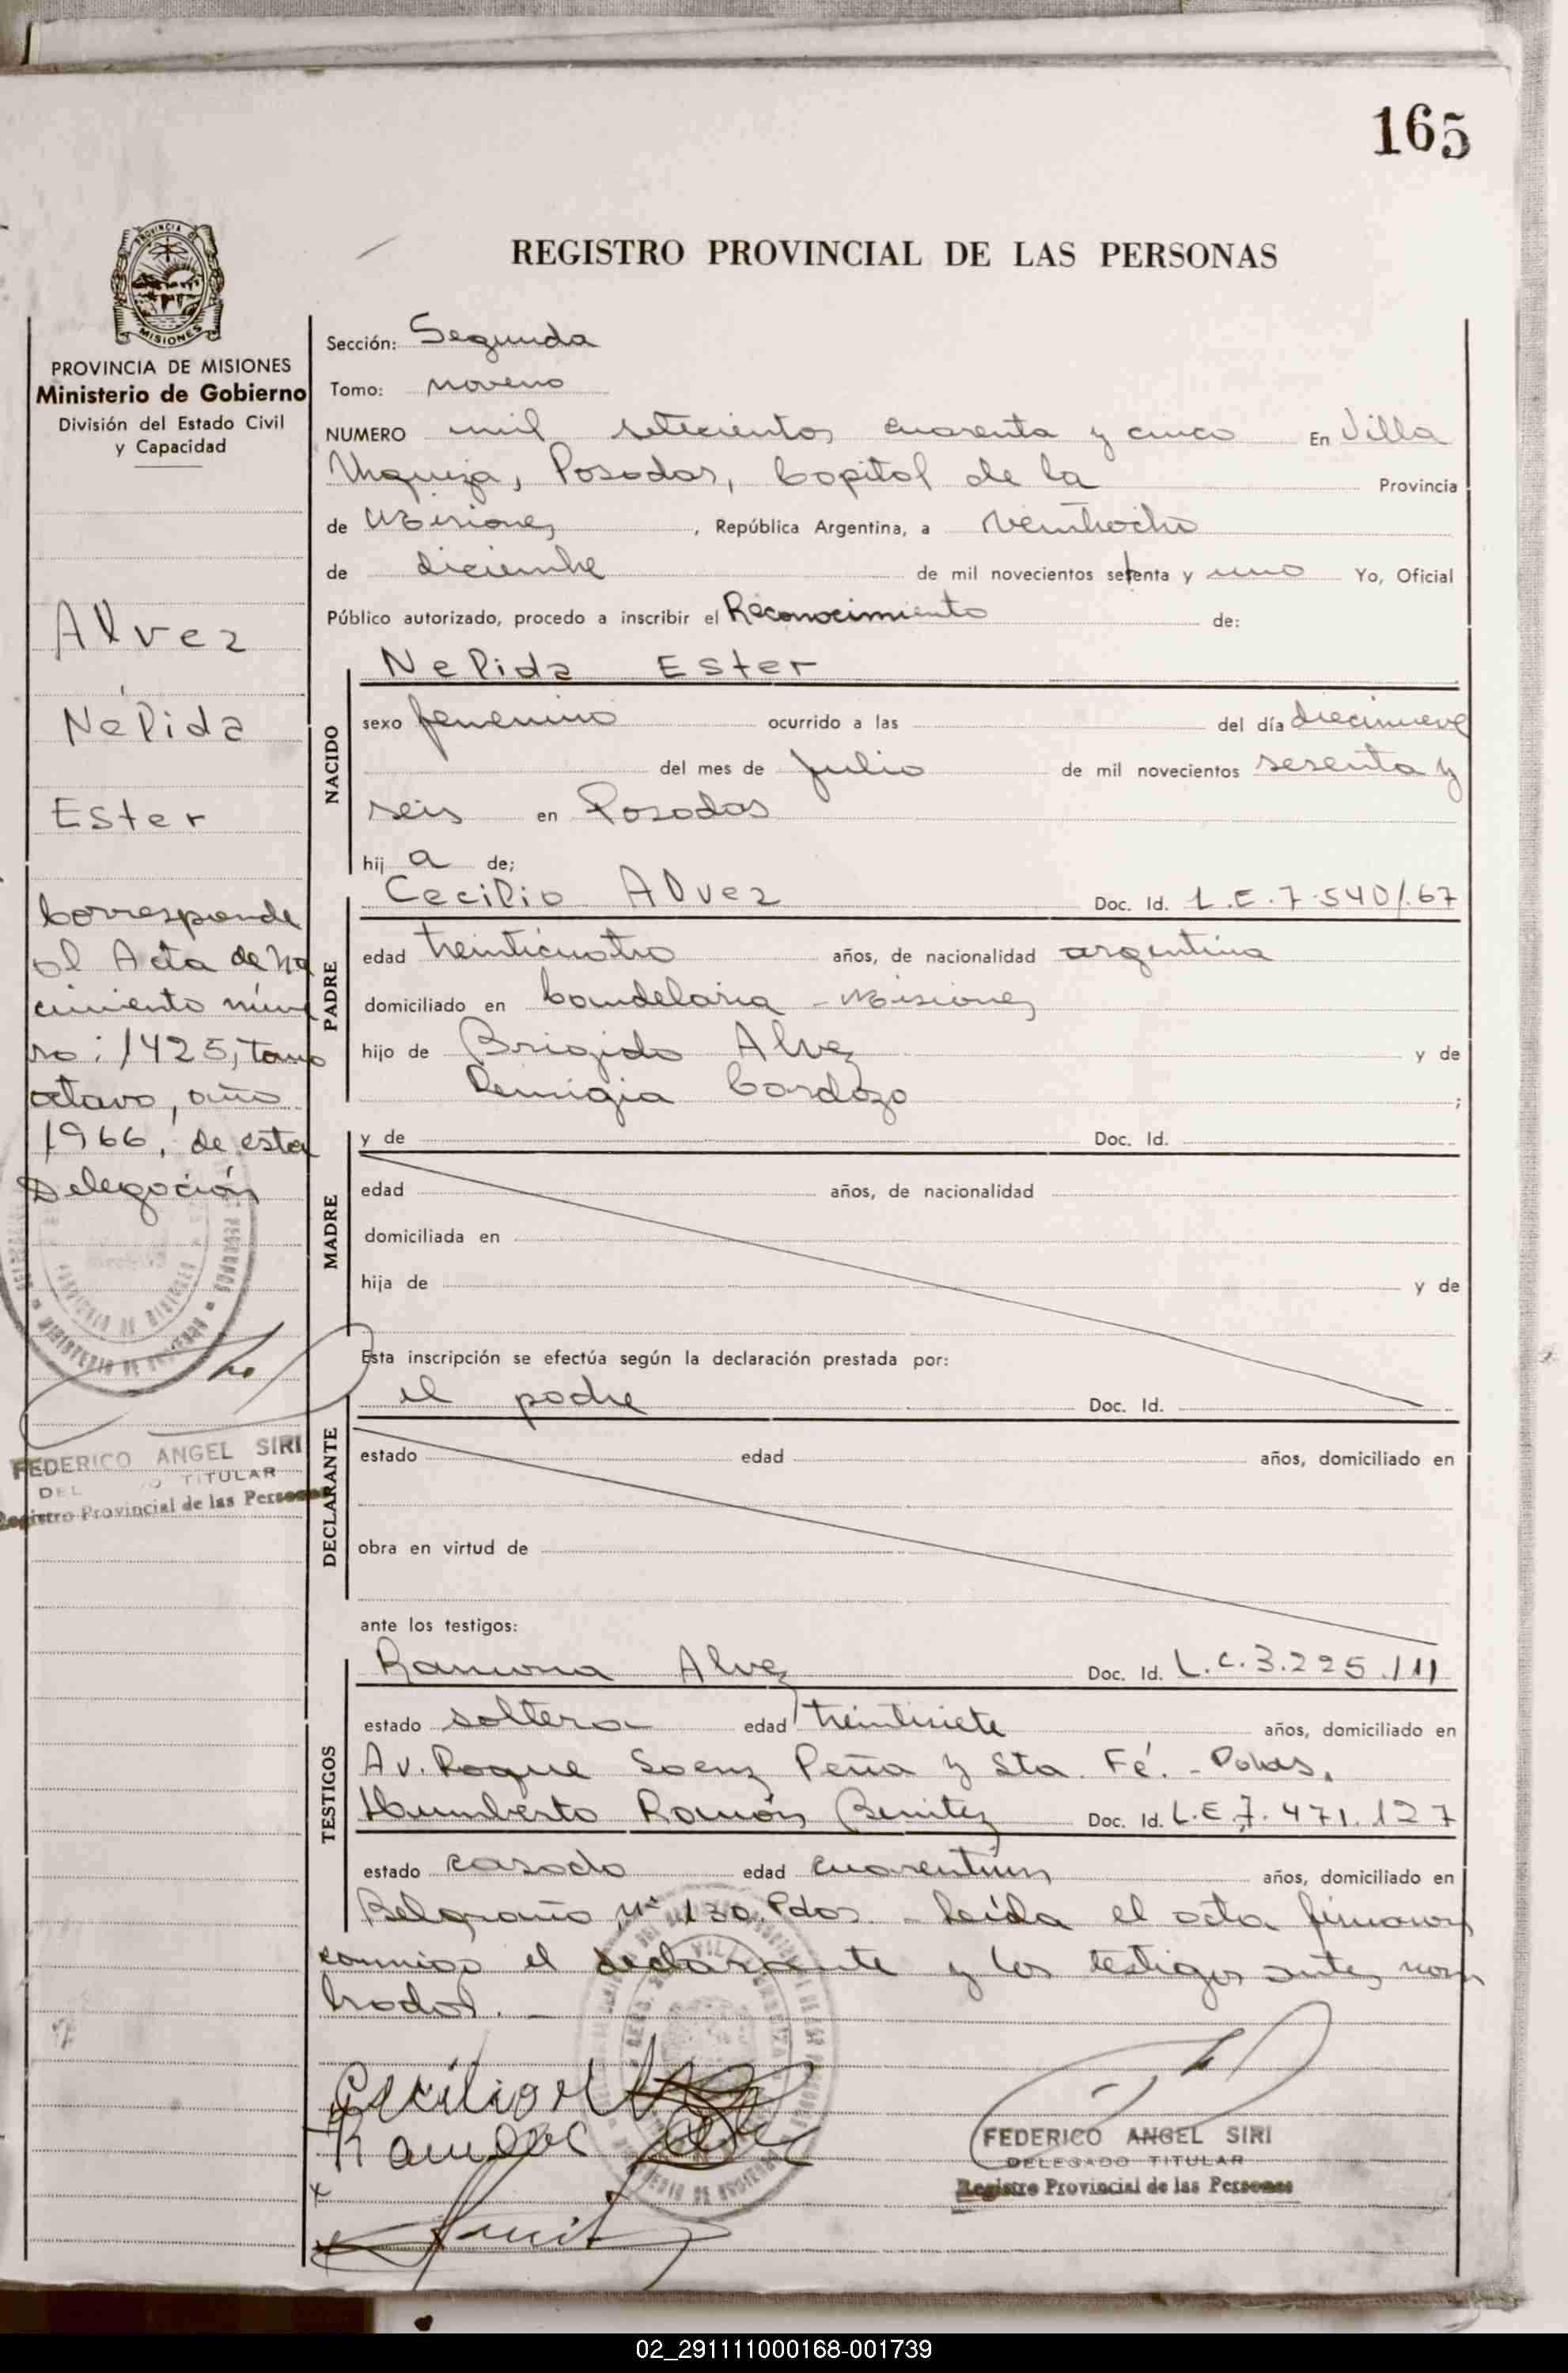 165
REGISTRO PROVINCIAL DE LAS PERSONAS
PROVINCIA DE MISIONES
Ministerio de Gobierno
División del Estado Civil
y Capacidad
Alvez
Nélida
Ester
Corresponde
al Acta de na
cimiento núme
ro: 1425, tomo
octavo, año
1966, de esta
Delegación
FEDERICO ANGEL SIRI
DEL TITULAR
Registro Provincial de las Personas
Sección: Segunda
Tomo: noveno
NUMERO mil setecientos cuarenta y cinco En Villa
Urquiza, Posadas, Capital de la Provincia
de Misiones, República Argentina, a veintiocho
de diciembre de mil novecientos setenta y uno Yo, Oficial
Público autorizado, procedo a inscribir el Reconocimiento de:
Nelida Ester
NACIDO
sexo femenino ocurrido a las del día diecinueve
del mes de julio de mil novecientos sesenta y
seis en Posadas
hij a de;
Cecilio Alvez Doc. Id. L.E. 7.540.167
PADRE
edad treinticuatro años, de nacionalidad argentina
domiciliado en Candelaria - Misiones
hijo de Brigido Alvez y de
Remigia Cardozo ;
MADRE
y de Doc. Id.
edad años, de nacionalidad
domiciliada en
hija de y de
Esta inscripción se efectúa según la declaración prestada por:
el padre Doc. Id.
DECLARANTE
estado edad años, domiciliado en
obra en virtud de
ante los testigos:
Ramona Alvez Doc. Id. L.C. 3.225.111
TESTIGOS
estado soltera edad treintisiete años, domiciliado en
Av. Roque Saenz Peña y Sta. Fé. - Pdas.
Humberto Ramón Benitez Doc. Id. L.E. 7.471.127
estado casado edad cuarentiún años, domiciliado en
Belgrano Nº 130. Pdas. - Leída el acta firmaron
conmigo el declarante y los testigos antes nom
brados. -
Cecilio
FEDERICO ANGEL SIRI
DELEGADO TITULAR
Registro Provincial de las Personas
02_291111000168-001739